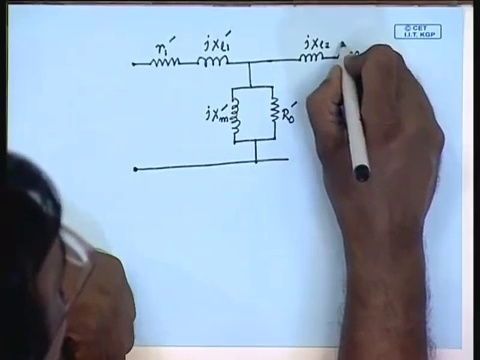 © CET
I.I.T. KGP
r₁′ jxₗ₁′ jxₗ₂
jxₘ′ R₀′